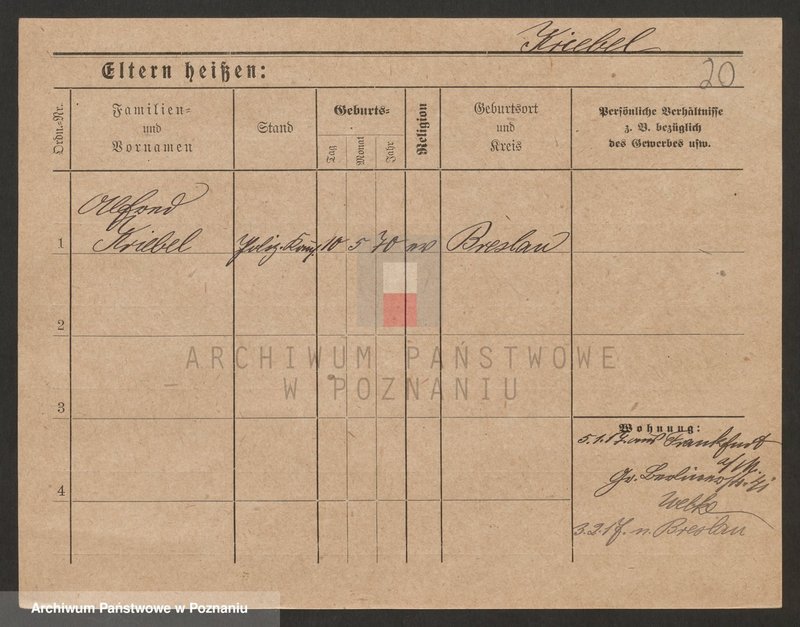 Kriebel
Eltern heißen:
20
Ordn.-Nr.
Familien-
und
Vornamen
Stand
Geburts-
Tag
Monat
Jahr
Religion
Geburtsort
und
Kreis
Persönliche Verhältnisse
z. B. bezüglich
des Gewerbes usw.
1
Kriebel
10
5
70
ev
Breslau
2
ARCHIWUM PAŃSTWOWE
W POZNANIU
3
Wohnung:
5.1.17. aus Frankfurt
a/M.
Gr. Berliner
4
3.2.17. n. Breslau
Archiwum Państwowe w Poznaniu